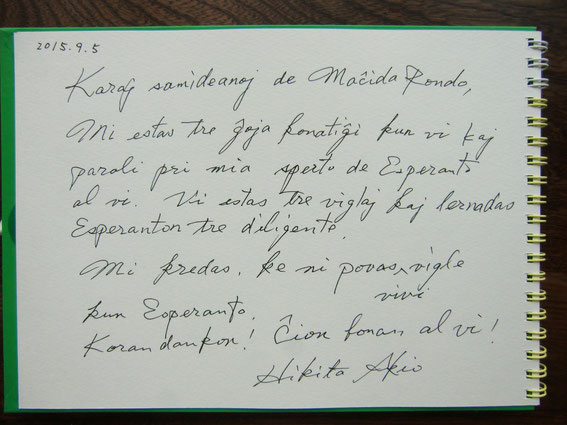 2015.9.5
Karaj samideanoj de Maĉida Rondo,
Mi estas tre ĝoja konatiĝi kun vi kaj
paroli pri mia sperto de Esperanto
al vi. Vi estas tre viglaj kaj lernadas
Esperanton tre diligente.
Mi kredas, ke ni povas vigle
vivi
kun Esperanto.
Koran dankon! Ĉion bonan al vi!
Hikita Akio